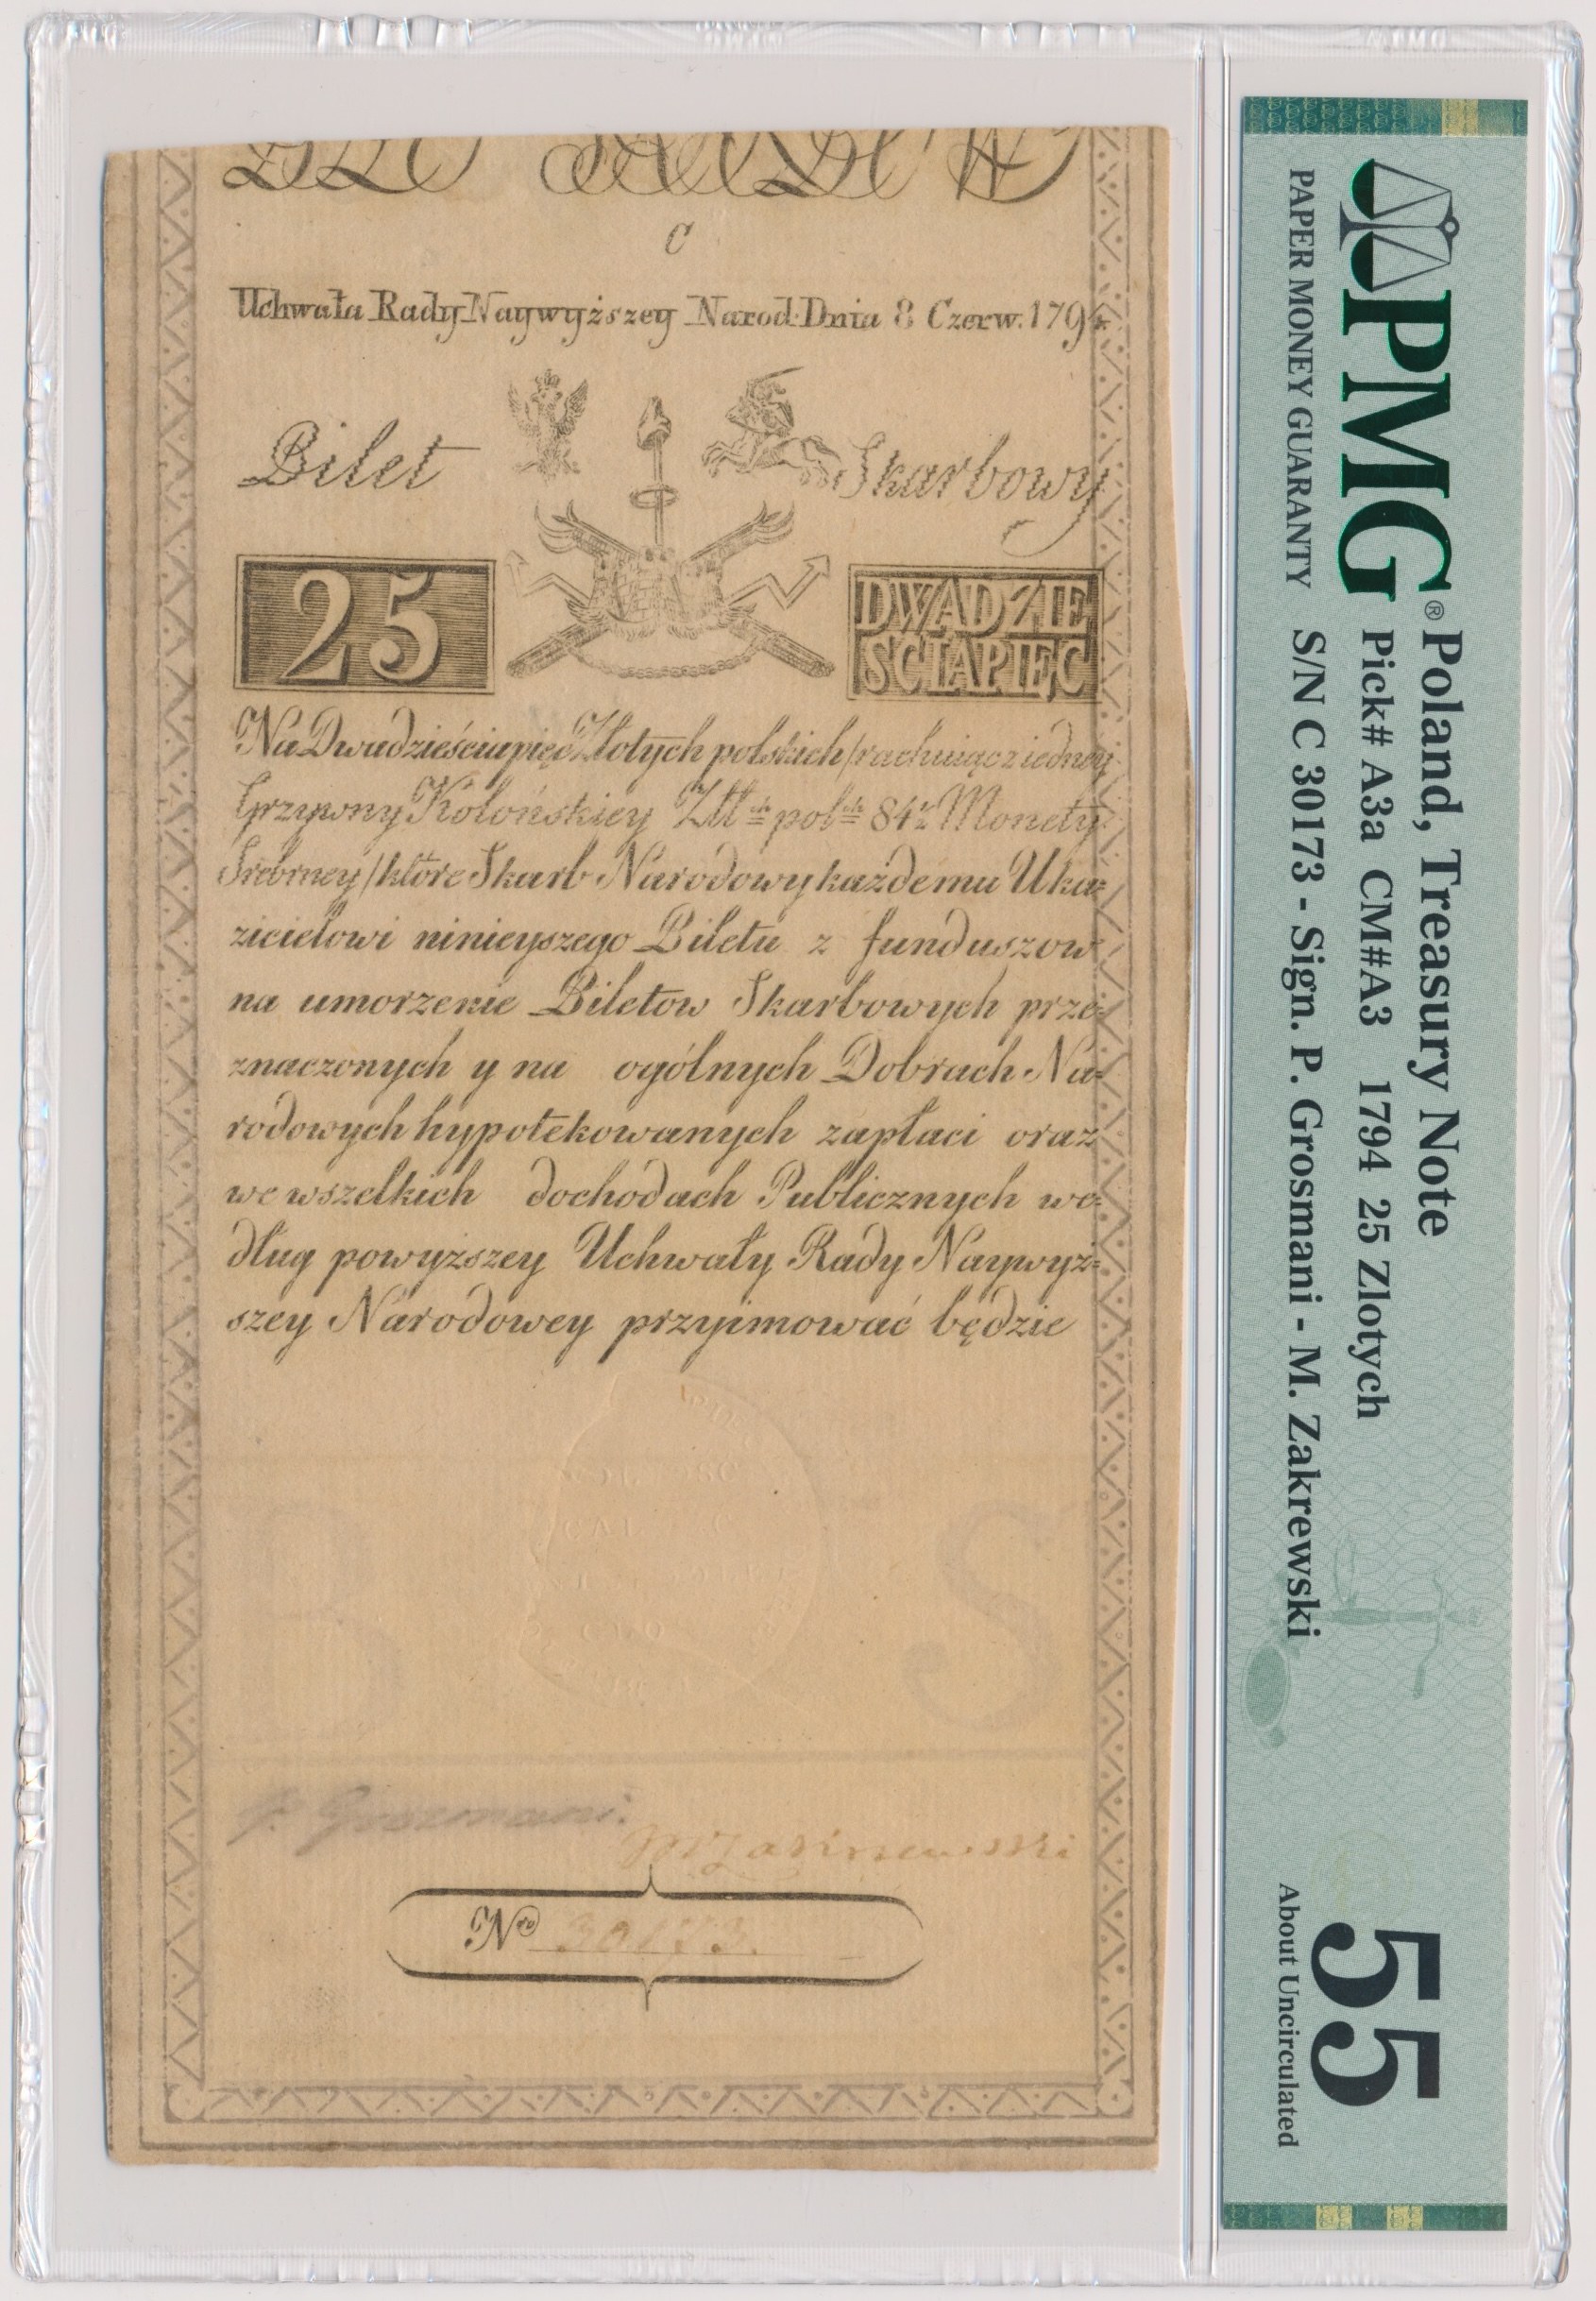 C
Uchwała Rady Naywyższey Narod: Dnia 8 Czerw. 1794
Bilet Skarbowy
25
DWADZIE
SCIAPIĘC
Na Dwadzieściapięć Złotych polskich /rachuiąc z iedney
Grzywny Kolońskiey Złł ch pol ch 84½ Monety
Srebrney/ które Skarb Narodowy każdemu Uka=
zicielowi ninieyszego Biletu z funduszow
na umorzenie Biletow Skarbowych prze=
znaczonych y na ogólnych Dobrach Na=
rodowych hypotekowanych zapłaci oraz
we wszelkich dochodach Publicznych we=
dług powyższey Uchwały Rady Naywyż=
szey Narodowey przyimować będzie
P. Grosmani.
MZakrzewski
No 30173.
PMG®
PAPER MONEY GUARANTY
Poland, Treasury Note
Pick# A3a CM#A3 1794 25 Zlotych
S/N C 30173 - Sign. P. Grosmani - M. Zakrewski
55
About Uncirculated